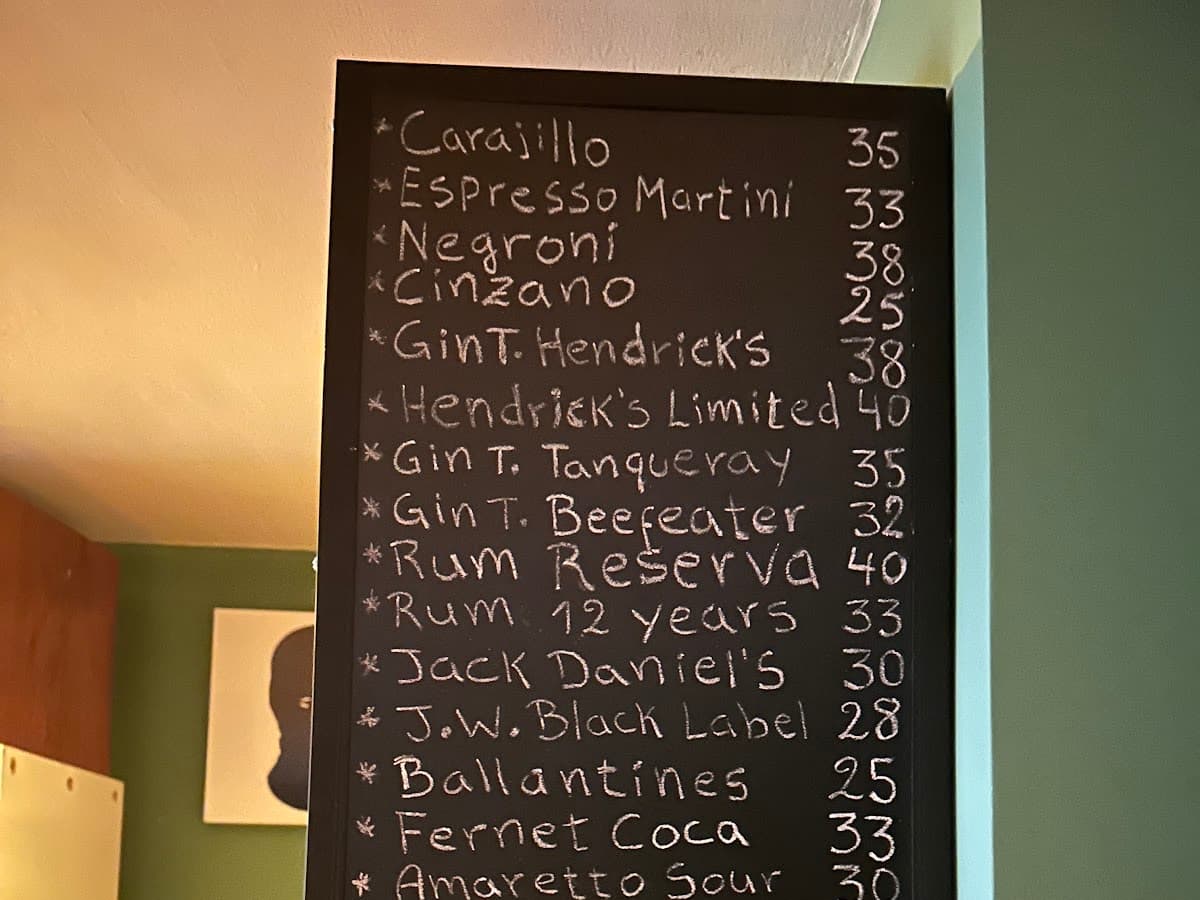 * Carajillo 35
* Espresso Martini 33
* Negroni 38
* Cinzano 25
* Gin T. Hendrick's 38
* Hendrick's Limited 40
* Gin T. Tanqueray 35
* Gin T. Beefeater 32
* Rum Reserva 40
* Rum 12 years 33
* Jack Daniel's 30
* J.W. Black Label 28
* Ballantines 25
* Fernet Coca 33
* Amaretto Sour 30